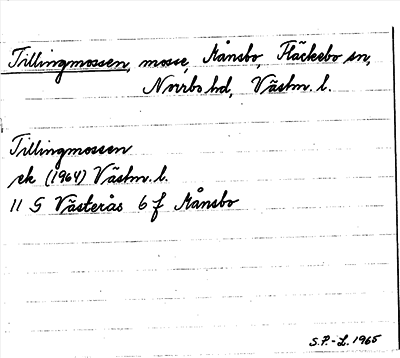 Tillingmossen, mosse, Månsbo, Fläckebo sn,
Norrbo hd, Västm. l.
Tillingmossen
ek (1964) Västm. l.
11 G Västerås 6 f Månsbo
S.P.-L. 1965